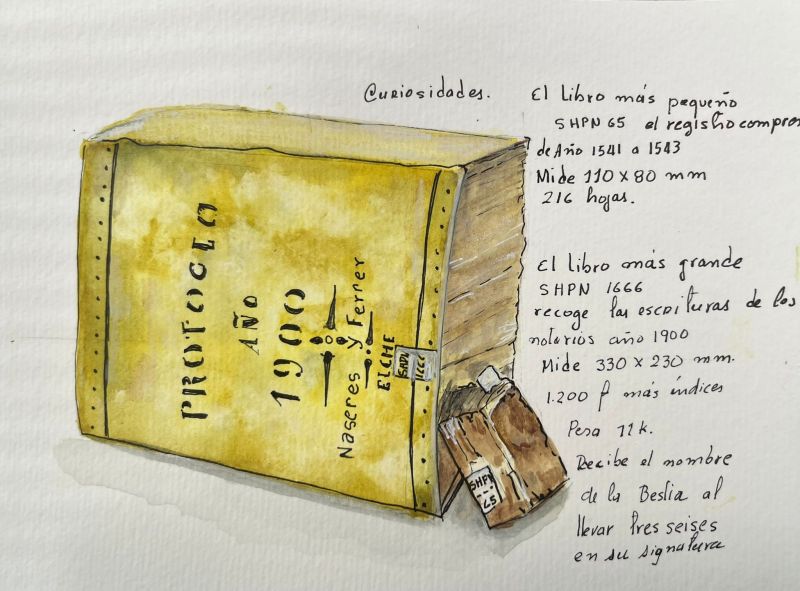 Curiosidades.
El libro más pequeño
SHPN 65 el registro compren
de Año 1541 a 1543
Mide 110 x 80 mm
216 hojas.
El libro más grande
SHPN 1666
recoge las escrituras de los
notarios año 1900
Mide 330 x 230 mm.
1.200 f más índices
Pesa 11 k.
Recibe el nombre
de la Bestia al
llevar tres seises
en su signatura
PROTOCLO
AÑO
1900
Naseres y Ferrer
ELCHE
1666
SHPN
65